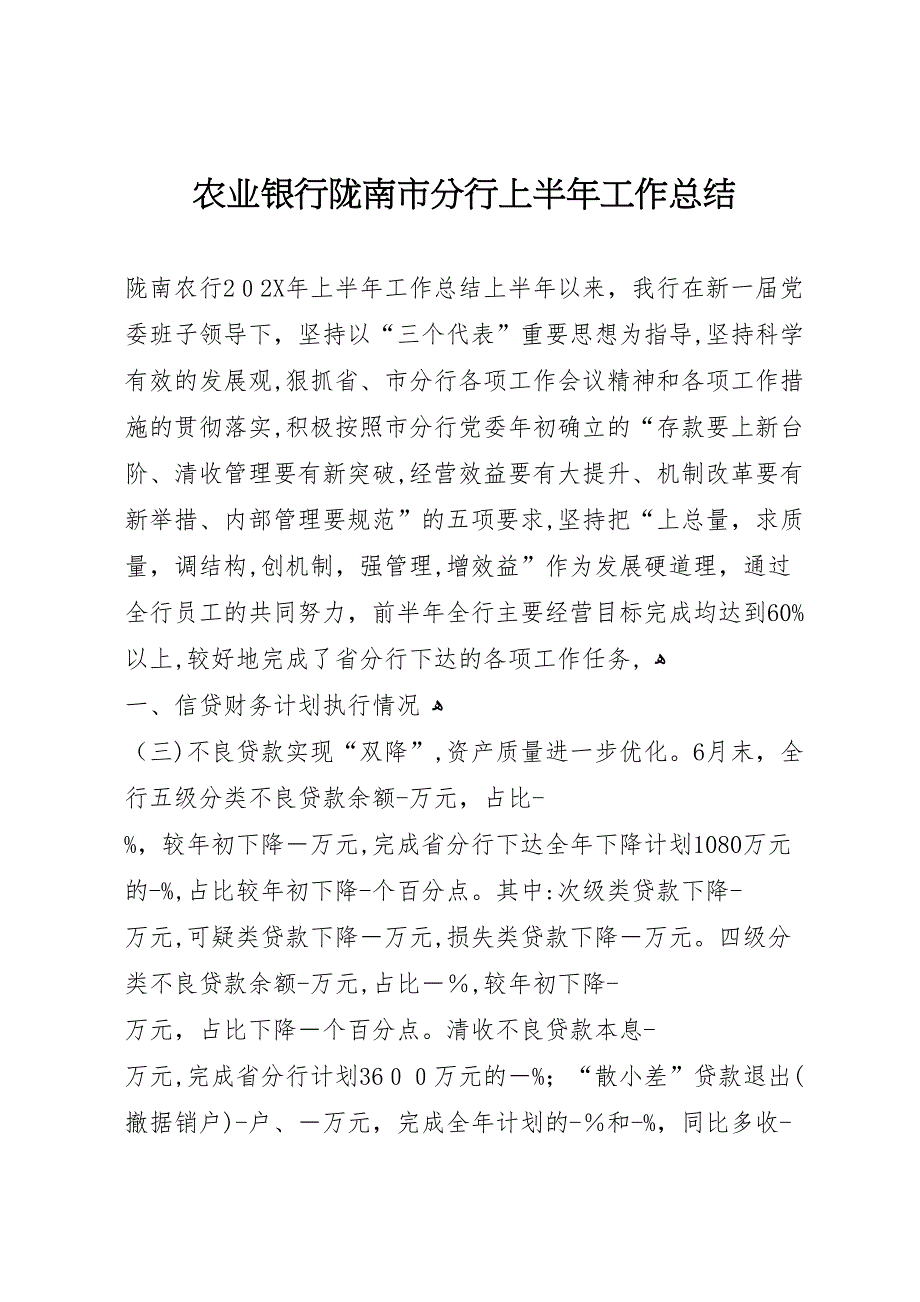 农业银行陇南市分行上半年工作总结
陇南农行2０2X年上半年工作总结上半年以来，我行在新一届党
委班子领导下，坚持以“三个代表”重要思想为指导,坚持科学
有效的发展观,狠抓省、市分行各项工作会议精神和各项工作措
施的贯彻落实,积极按照市分行党委年初确立的“存款要上新台
阶、清收管理要有新突破,经营效益要有大提升、机制改革要有
新举措、内部管理要规范”的五项要求,坚持把“上总量，求质
量，调结构,创机制，强管理,增效益”作为发展硬道理，通过
全行员工的共同努力，前半年全行主要经营目标完成均达到60%
以上,较好地完成了省分行下达的各项工作任务,ﻫ
一、信贷财务计划执行情况ﻫ
（三)不良贷款实现“双降”,资产质量进一步优化。6月末，全
行五级分类不良贷款余额-万元，占比-
%，较年初下降－万元,完成省分行下达全年下降计划1080万元
的-%,占比较年初下降-个百分点。其中:次级类贷款下降-
万元,可疑类贷款下降－万元,损失类贷款下降－万元。四级分
类不良贷款余额-万元,占比－％,较年初下降-
万元，占比下降－个百分点。清收不良贷款本息-
万元,完成省分行计划36００万元的－%；“散小差”贷款退出(
撤据销户)-户、－万元，完成全年计划的-％和-%，同比多收-